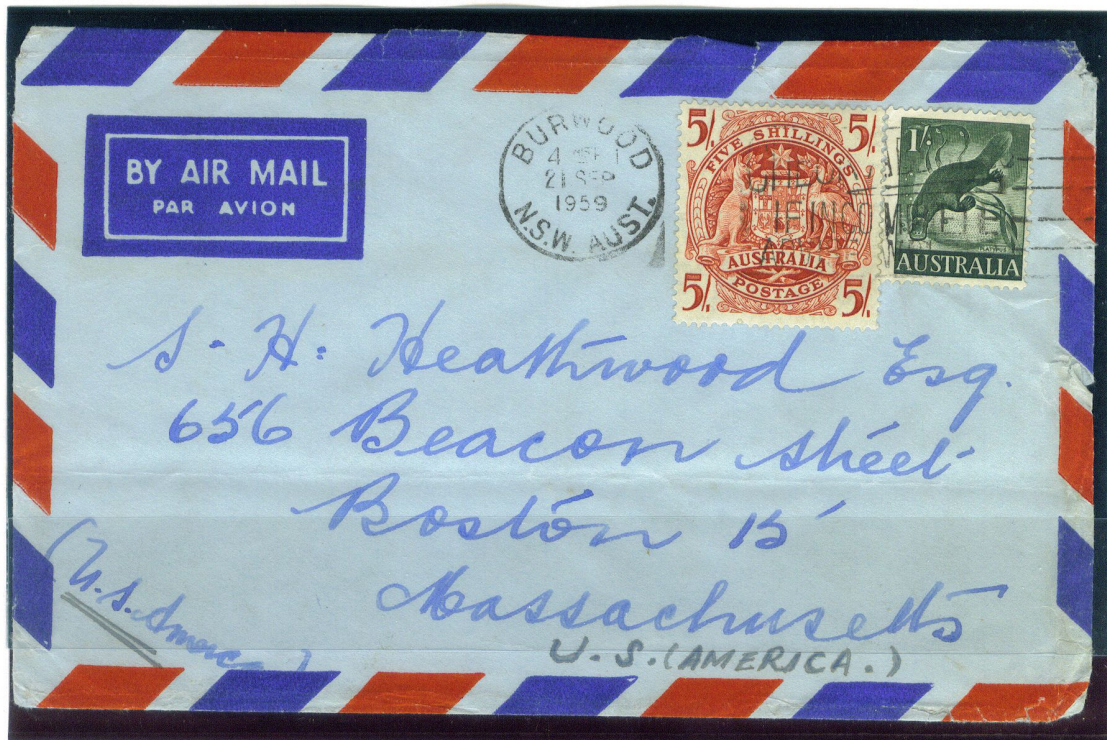 BY AIR MAIL
PAR AVION
BURWOOD
21 SEP
1959
N.S.W. AUST.
5/. 5/.
FIVE SHILLINGS
AUSTRALIA
POSTAGE
5/. 5/.
1/.
AUSTRALIA
S. H. Heathwood Esq.
656 Beacon Street
Boston 15
Massachusetts
(U.S. America)
U.S. (AMERICA.)